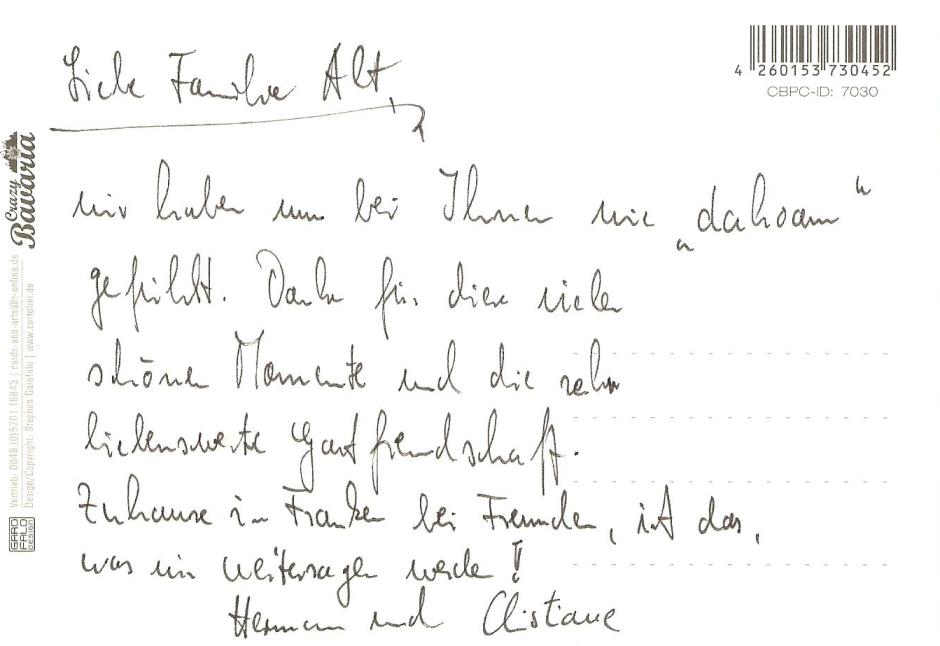 Liebe Familie Alt,
4 260153 730452
CBPC-ID: 7030
wir haben uns bei Ihnen wie „dahoam“
gefühlt. Danke für diese vielen
schönen Momente und die sehr
liebenswerte Gastfreundschaft.
Zuhause in Franken bei Freunden, ist das,
was wir weitersagen werden!
Hermann und Christiane
Crazy
Bavaria
Vertrieb: 0049.(0)5201.15843 | cards-and-arts@t-online.de
Design/Copyright: Stephan Garofalo | www.cartolini.de
GARO
FALO
DESIGN